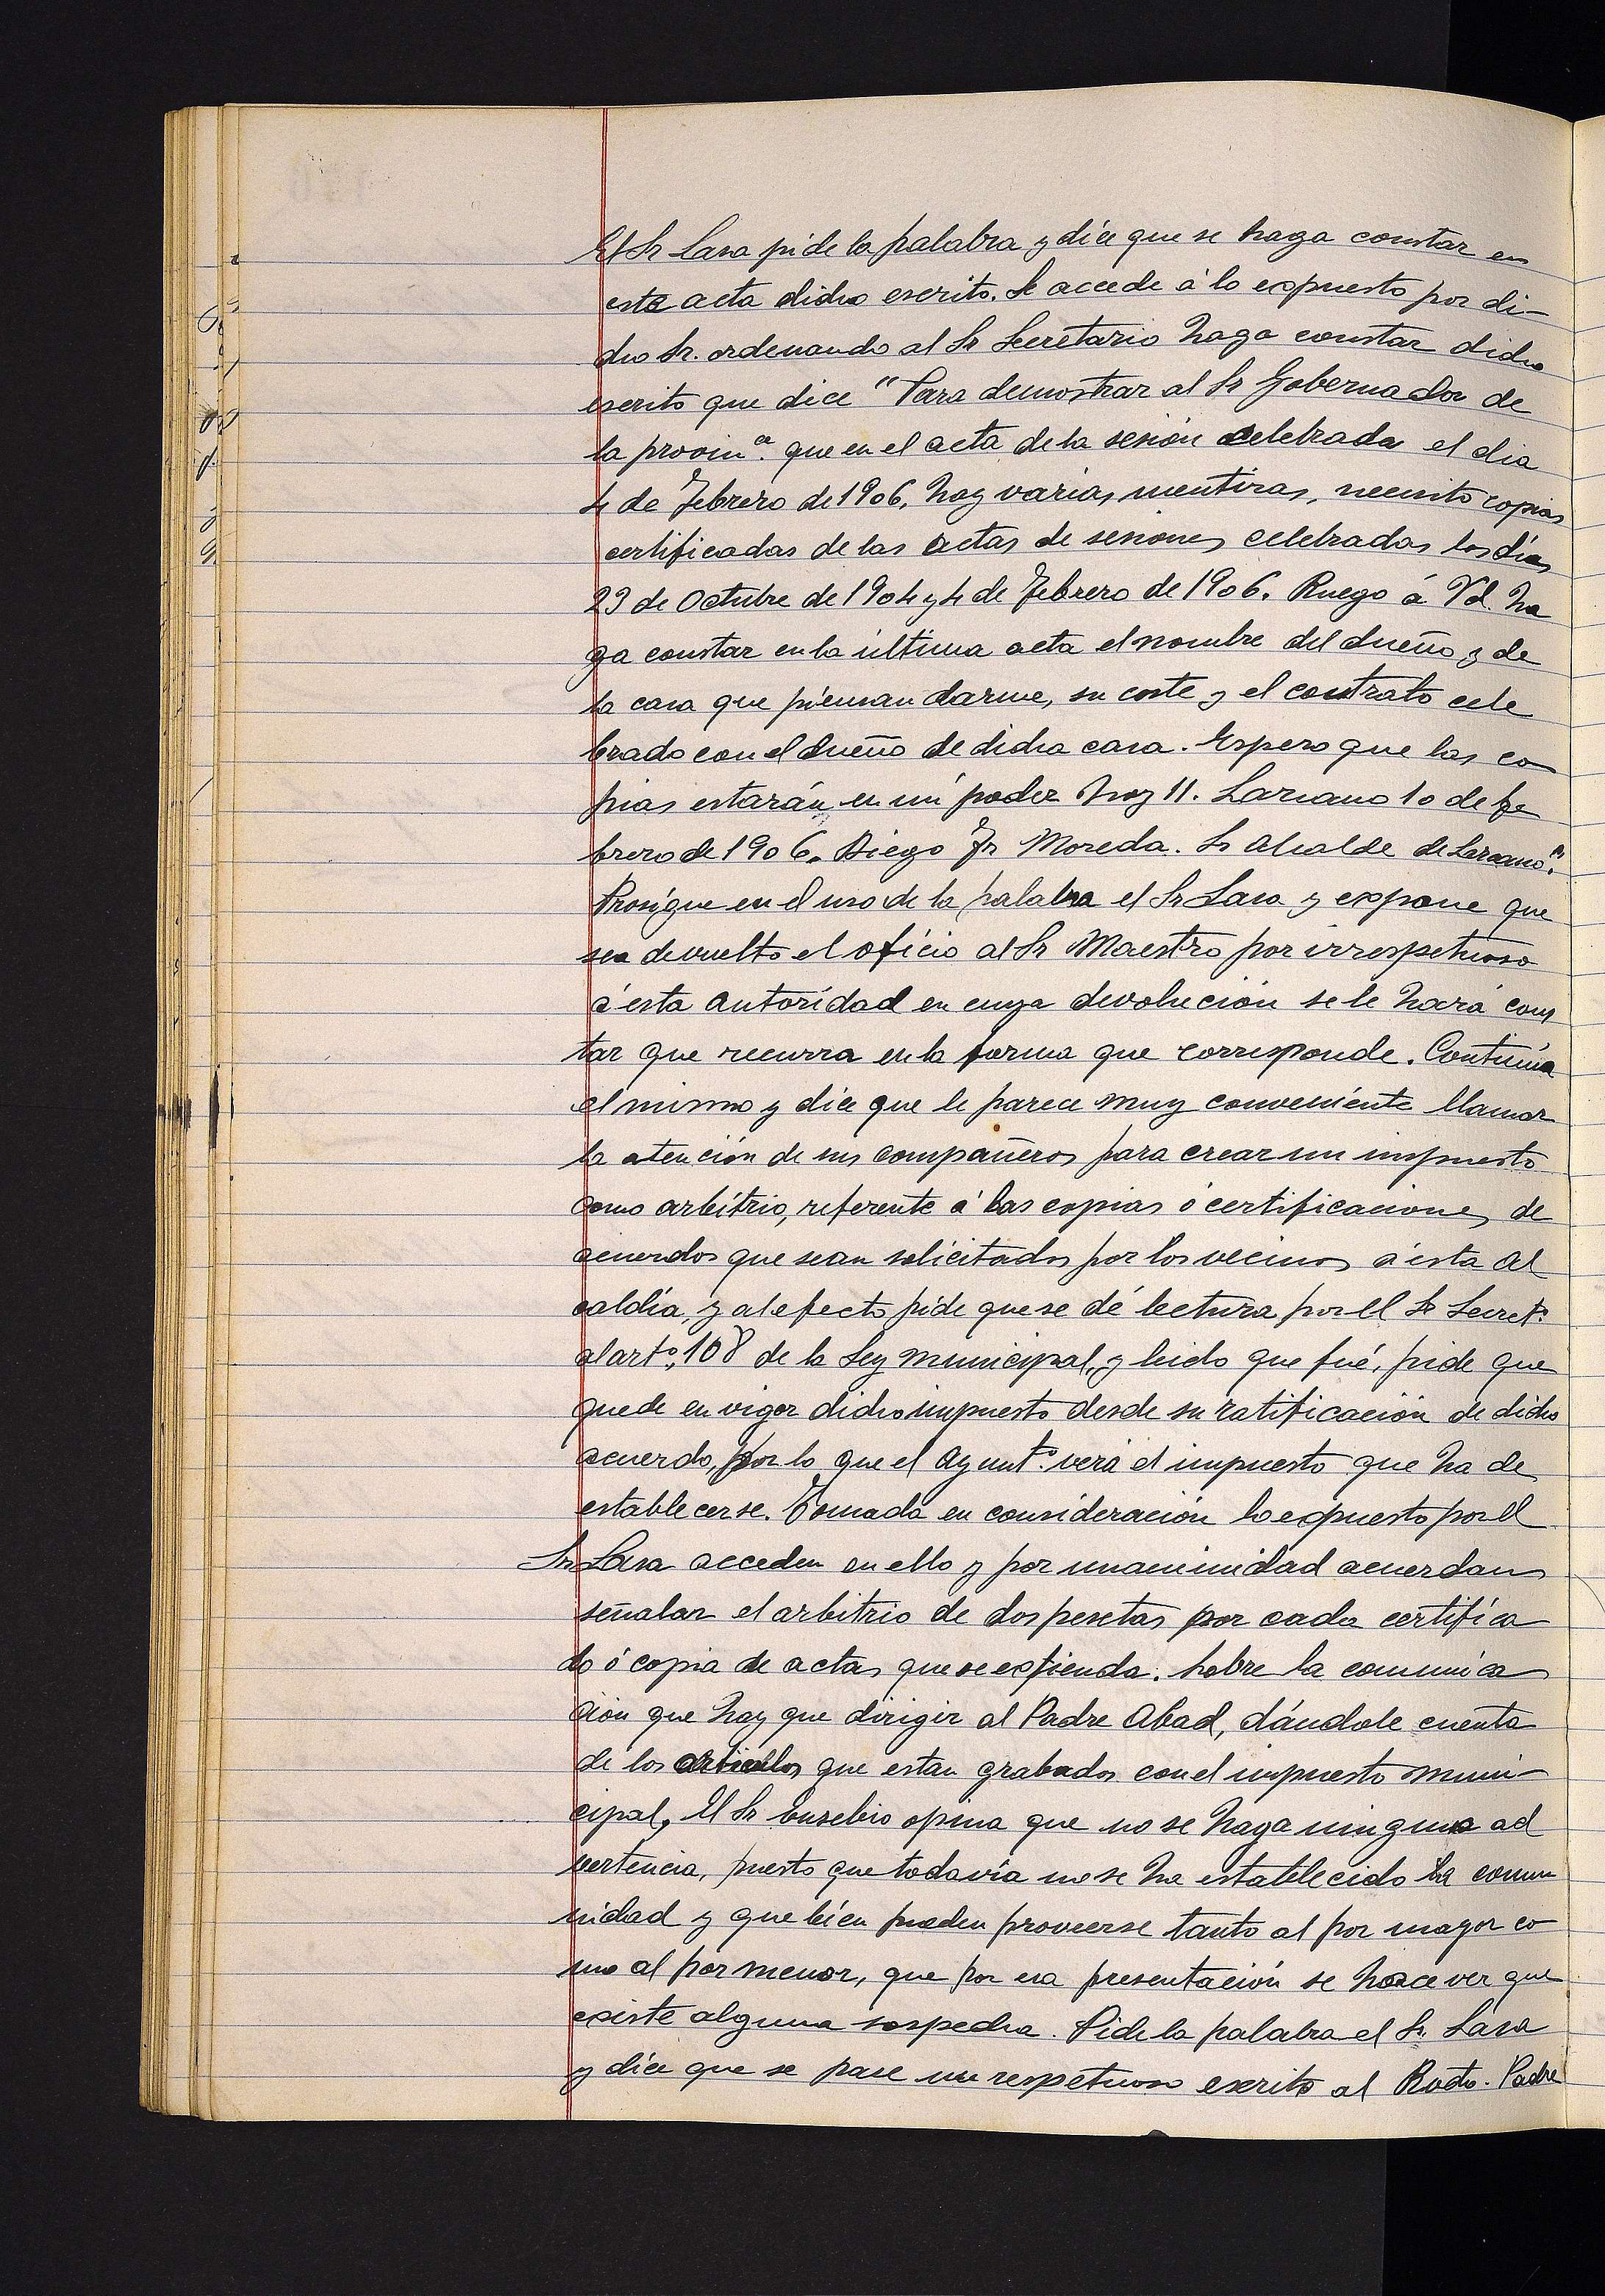 El Sr Lasa pide la palabra y dice que se haga constar en
esta acta dicho escrito. Se accede á lo expuesto por di-
cho Sr. ordenando al Sr Secretario haga constar dicho
escrito que dice "Para demostrar al Sr Gobernador de
la provin.ª que en el acta de la sesión celebrada el dia
4 de Febrero de 1906, hay varias mentiras, necesito copias
certificadas de las actas de sesiones celebradas los días
29 de Octubre de 1904 y 4 de Febrero de 1906. Ruego á Vd. ha
ga constar en la última acta el nombre del dueño y de
la casa que piensan darme, su coste y el contrato cele
brado con el dueño de dicha casa. Espero que las co
pias estarán en mi poder hoy 11. Lazcano 10 de fe
brero de 1906. Diego Fz Moreda. Sr Alcalde de Lazcano."
Prosigue en el uso de la palabra el Sr Lasa y expone que
sea devuelto el oficio al Sr Maestro por irrespetuoso
á esta autoridad en cuya devolución se le hará cons
tar que recurra en la forma que corresponde. Continúa
el mismo y dice que le parece muy conveniente llamar
la atención de sus compañeros para crear un impuesto
como arbitrio, referente á las copias ó certificaciones de
acuerdos que sean solicitados por los vecinos á esta Al
caldía, y al efecto pide que se dé lectura por el Sr Secret.º
al art.º 108 de la Ley municipal, y leido que fué, pide que
quede en vigor dicho impuesto desde su ratificación de dicho
acuerdo, por lo que el Ayunt.º verá el impuesto que ha de
establecerse. Tomada en consideración lo expuesto por el
Sr Lasa acceden en ello y por unanimidad acuerdan
señalar el arbitrio de dos pesetas por cada certifica
do ó copia de actas que se expienda. Sobre la comunica
ción que hay que dirigir al Padre Abad, dándole cuenta
de los articulos que estan grabados con el impuesto muni-
cipal, El Sr Eusebio opina que no se haga ninguna ad
vertencia, puesto que todavía no se ha establecido la comu
nidad y que bien pueden proveerse tanto al por mayor co
mo al por menor, que por esa presentación se hace ver que
existe alguna sospecha. Pide la palabra el Sr. Lasa
y dice que se pase un respetuoso escrito al Rvdo. Padre